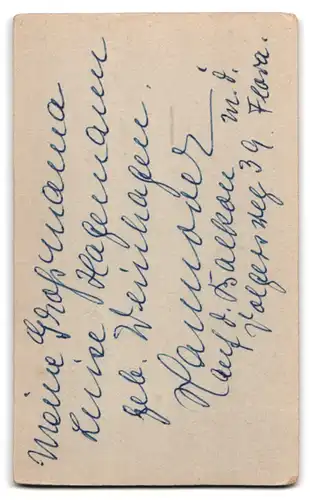 Meine Großmama
Luise Hagemann
geb. Weinhagen.
Hannover
auf d. Balkon m. d.
Volgersweg 39 Flora.